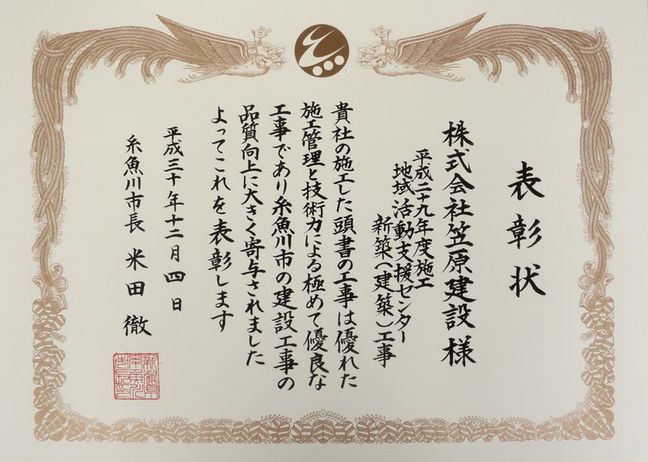 表彰状
株式会社笠原建設 様
平成二十九年度施工
地域活動支援センター
新築(建築)工事
貴社の施工した頭書の工事は優れた
施工管理と技術力による極めて優良な
工事であり糸魚川市の建設工事の
品質向上に大きく寄与されました
よってこれを表彰します
平成三十年十二月四日
糸魚川市長 米田 徹